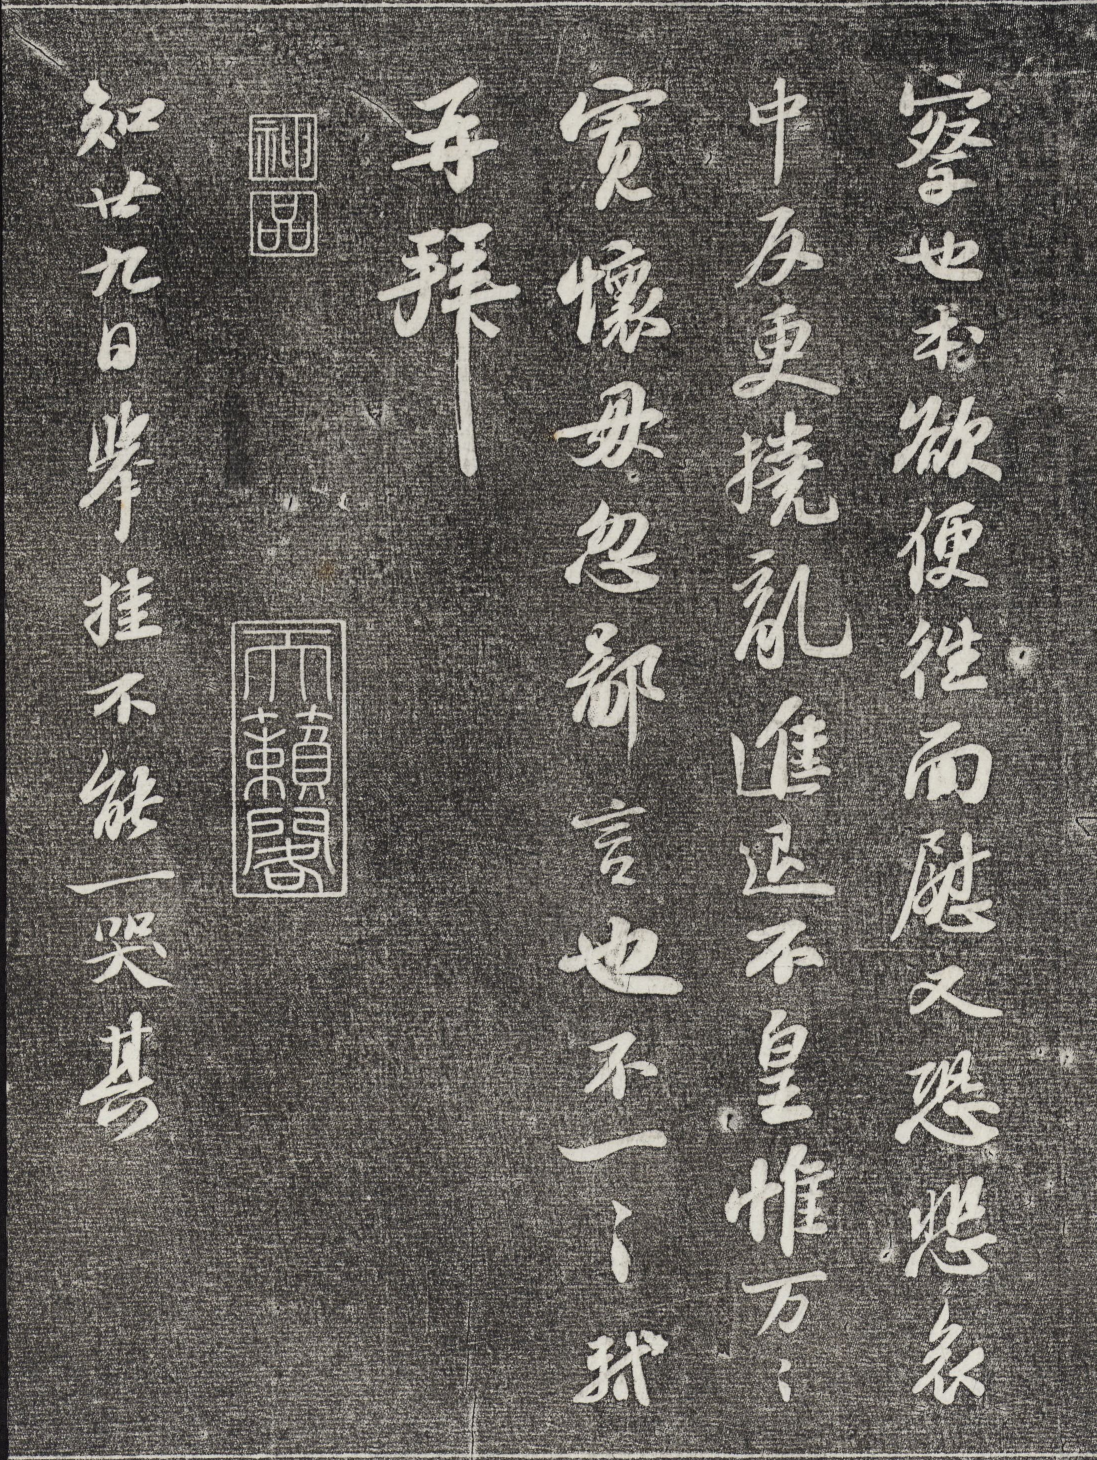 察也本欲便往而慰又恐悲哀
中反更撓亂進退不皇惟万〻
寬懷毋忽鄙言也不一〻軾
再拜
神品
天籟閣
知廿九日舉挂不能一哭其